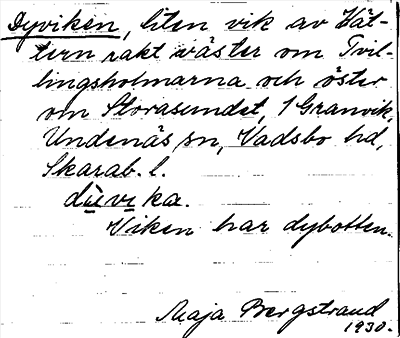 Dyviken, liten vik av Vät-
tern rakt väster om Tvil-
lingsholmarna och öster
om Storasundet, 1 Granvik,
Undenäs sn, Vadsbo hd,
Skarab. l.
dὺvika.
Viken har dybotten.
Maja Bergstrand
1930.